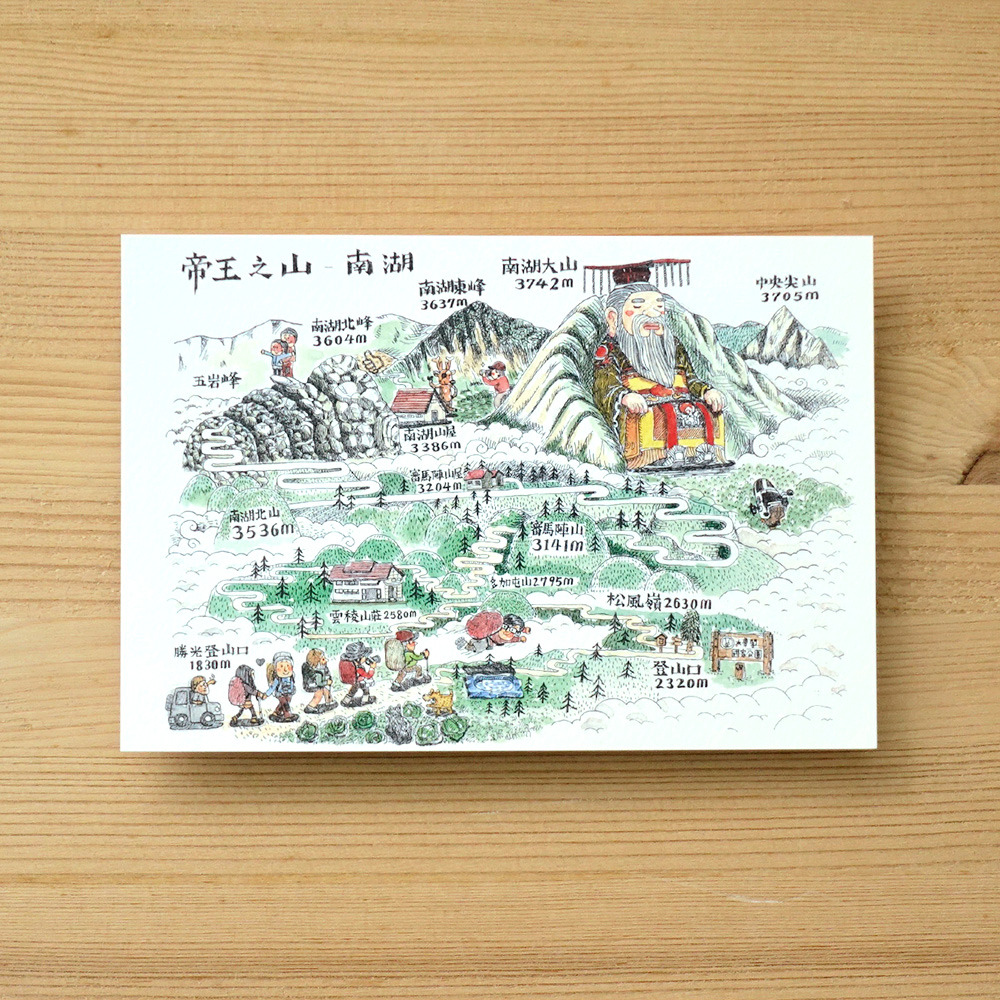 帝王之山 - 南湖
南湖大山
3742m
南湖東峰
3637m
中央尖山
3705m
南湖北峰
3604m
五岩峰
南湖山屋
3386m
審馬陣山屋
3204m
南湖北山
3536m
審馬陣山
3141m
多加屯山2795m
雲稜山莊2580m
松風嶺2630m
勝光登山口
1830m
登山口
2320m
國家公園